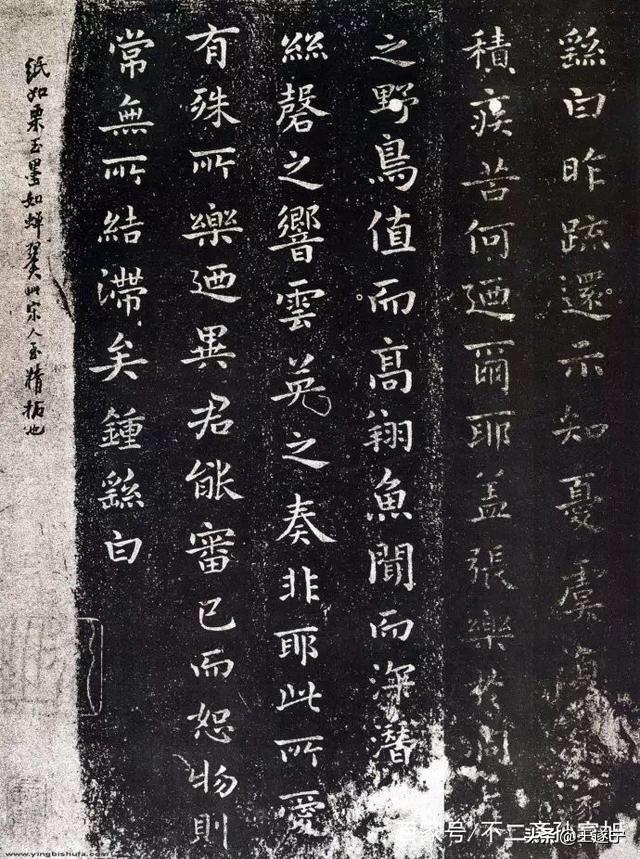 繇白昨疏還示知憂虞復深遂
積疾苦何迺爾耶盖張樂於洞
之野鳥值而高翔魚聞而深潛
絲磬之響雲英之奏非耶此所愛
有殊所樂迺異君能審己而恕物則
常無所結滯矣鍾繇白
紙如栗玉墨如蟬翼此宋人至精拓也
www.yingbishufa.com
百家号/不二斋
头条@王遂宁